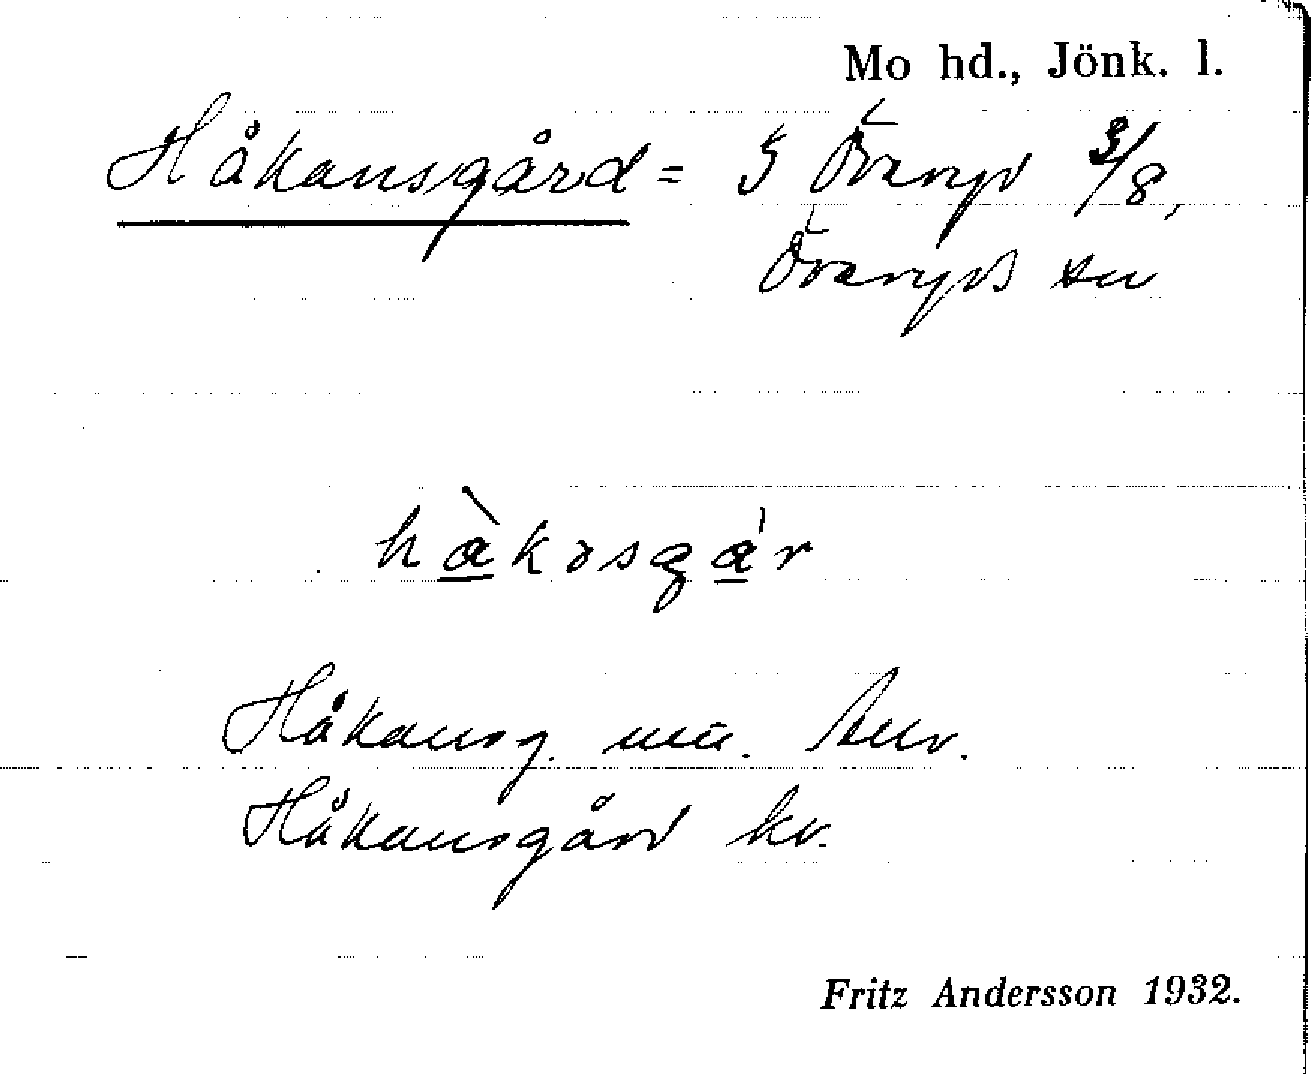 Mo hd., Jönk. l.
Håkansgård = S Öreryd 3/8,
Öreryds sn
hàkɔsgá'r
Håkansg. mū.
Håkansgård kv.
Fritz Andersson 1932.